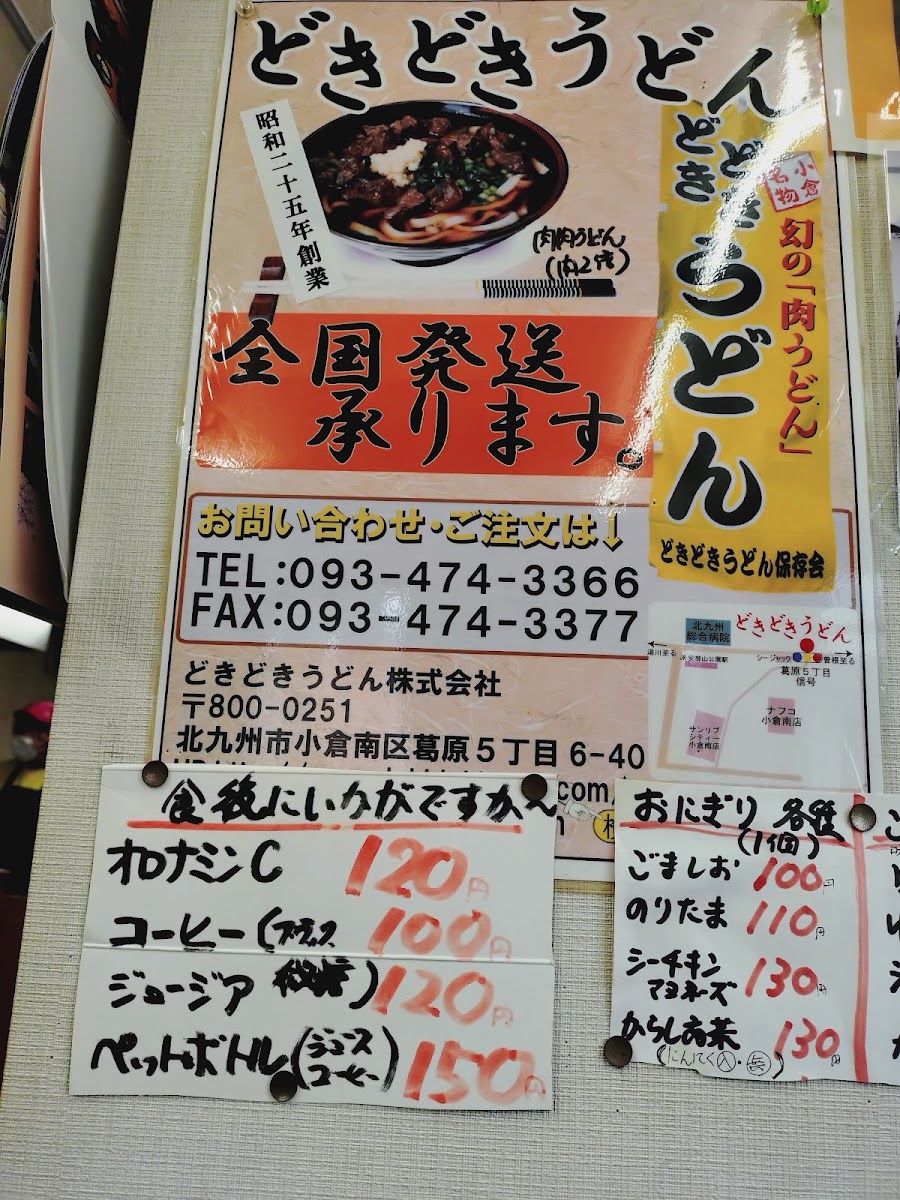 どきどきうどん
昭和二十五年創業
肉肉うどん
(肉2倍)
小倉
名物
幻の「肉うどん」
どきどきうどん
どきどきうどん保存会
全国発送
承ります。
お問い合わせ・ご注文は↓
TEL:093-474-3366
FAX:093-474-3377
どきどきうどん株式会社
〒800-0251
北九州市小倉南区葛原5丁目6-40
.com/
北九州
総合病院
どきどきうどん
湯川至る
シージャック
曽根至る
葛原5丁目
信号
ナフコ
小倉南店
サンリブ
シティー
小倉南店
食後にいかがですか〜
オロナミンC 120円
コーヒー(ブラック 100円
ジョージア 微糖)120円
ペットボトル(ジュース
コーヒー)150円
おにぎり 各種
(1個)
ごましお 100円
のりたま 110円
シーチキン
マヨネーズ 130円
からし高菜 130円